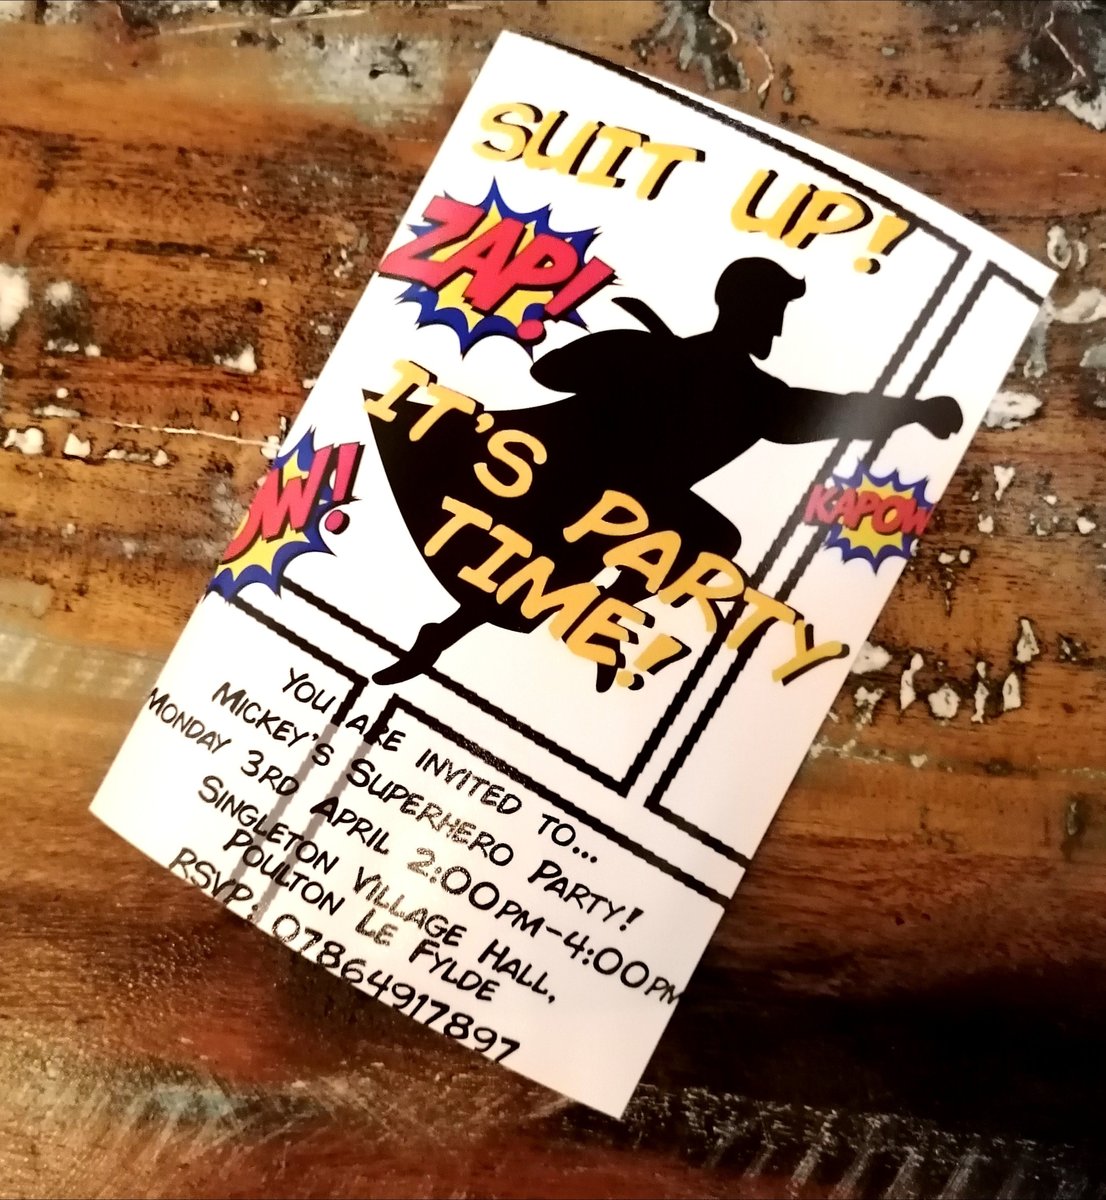 SUIT UP!
ZAP!
IT'S PARTY
TIME!
OW!
KAPOW
YOU ARE INVITED TO...
MICKEY'S SUPERHERO PARTY!
MONDAY 3RD APRIL 2:00PM-4:00PM
SINGLETON VILLAGE HALL,
POULTON LE FYLDE
RSVP: 07864917897